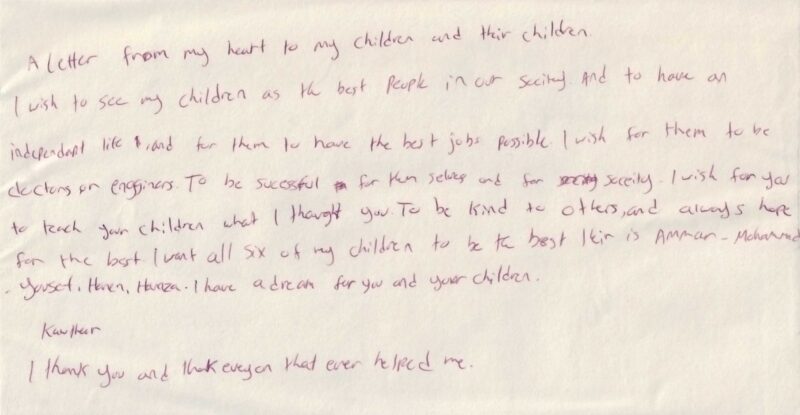 A letter from my heart to my children and thir children.
I wish to see my children as the best people in our soceity. And to have an
independapt life, and for them to have the best jobs possible. I wish for them to be
doctors or engginers. To be sucessful for them selves and for soceity. I wish for you
to teach your children what I thought you. To be kind to others, and always hope
for the best. I want all six of my children to be the best is Ammar - Mohammad
- Yousef, Haneen, Hamza. I have a dream for you and your children.
Kawthar
I thank you and thak that ever helped me.